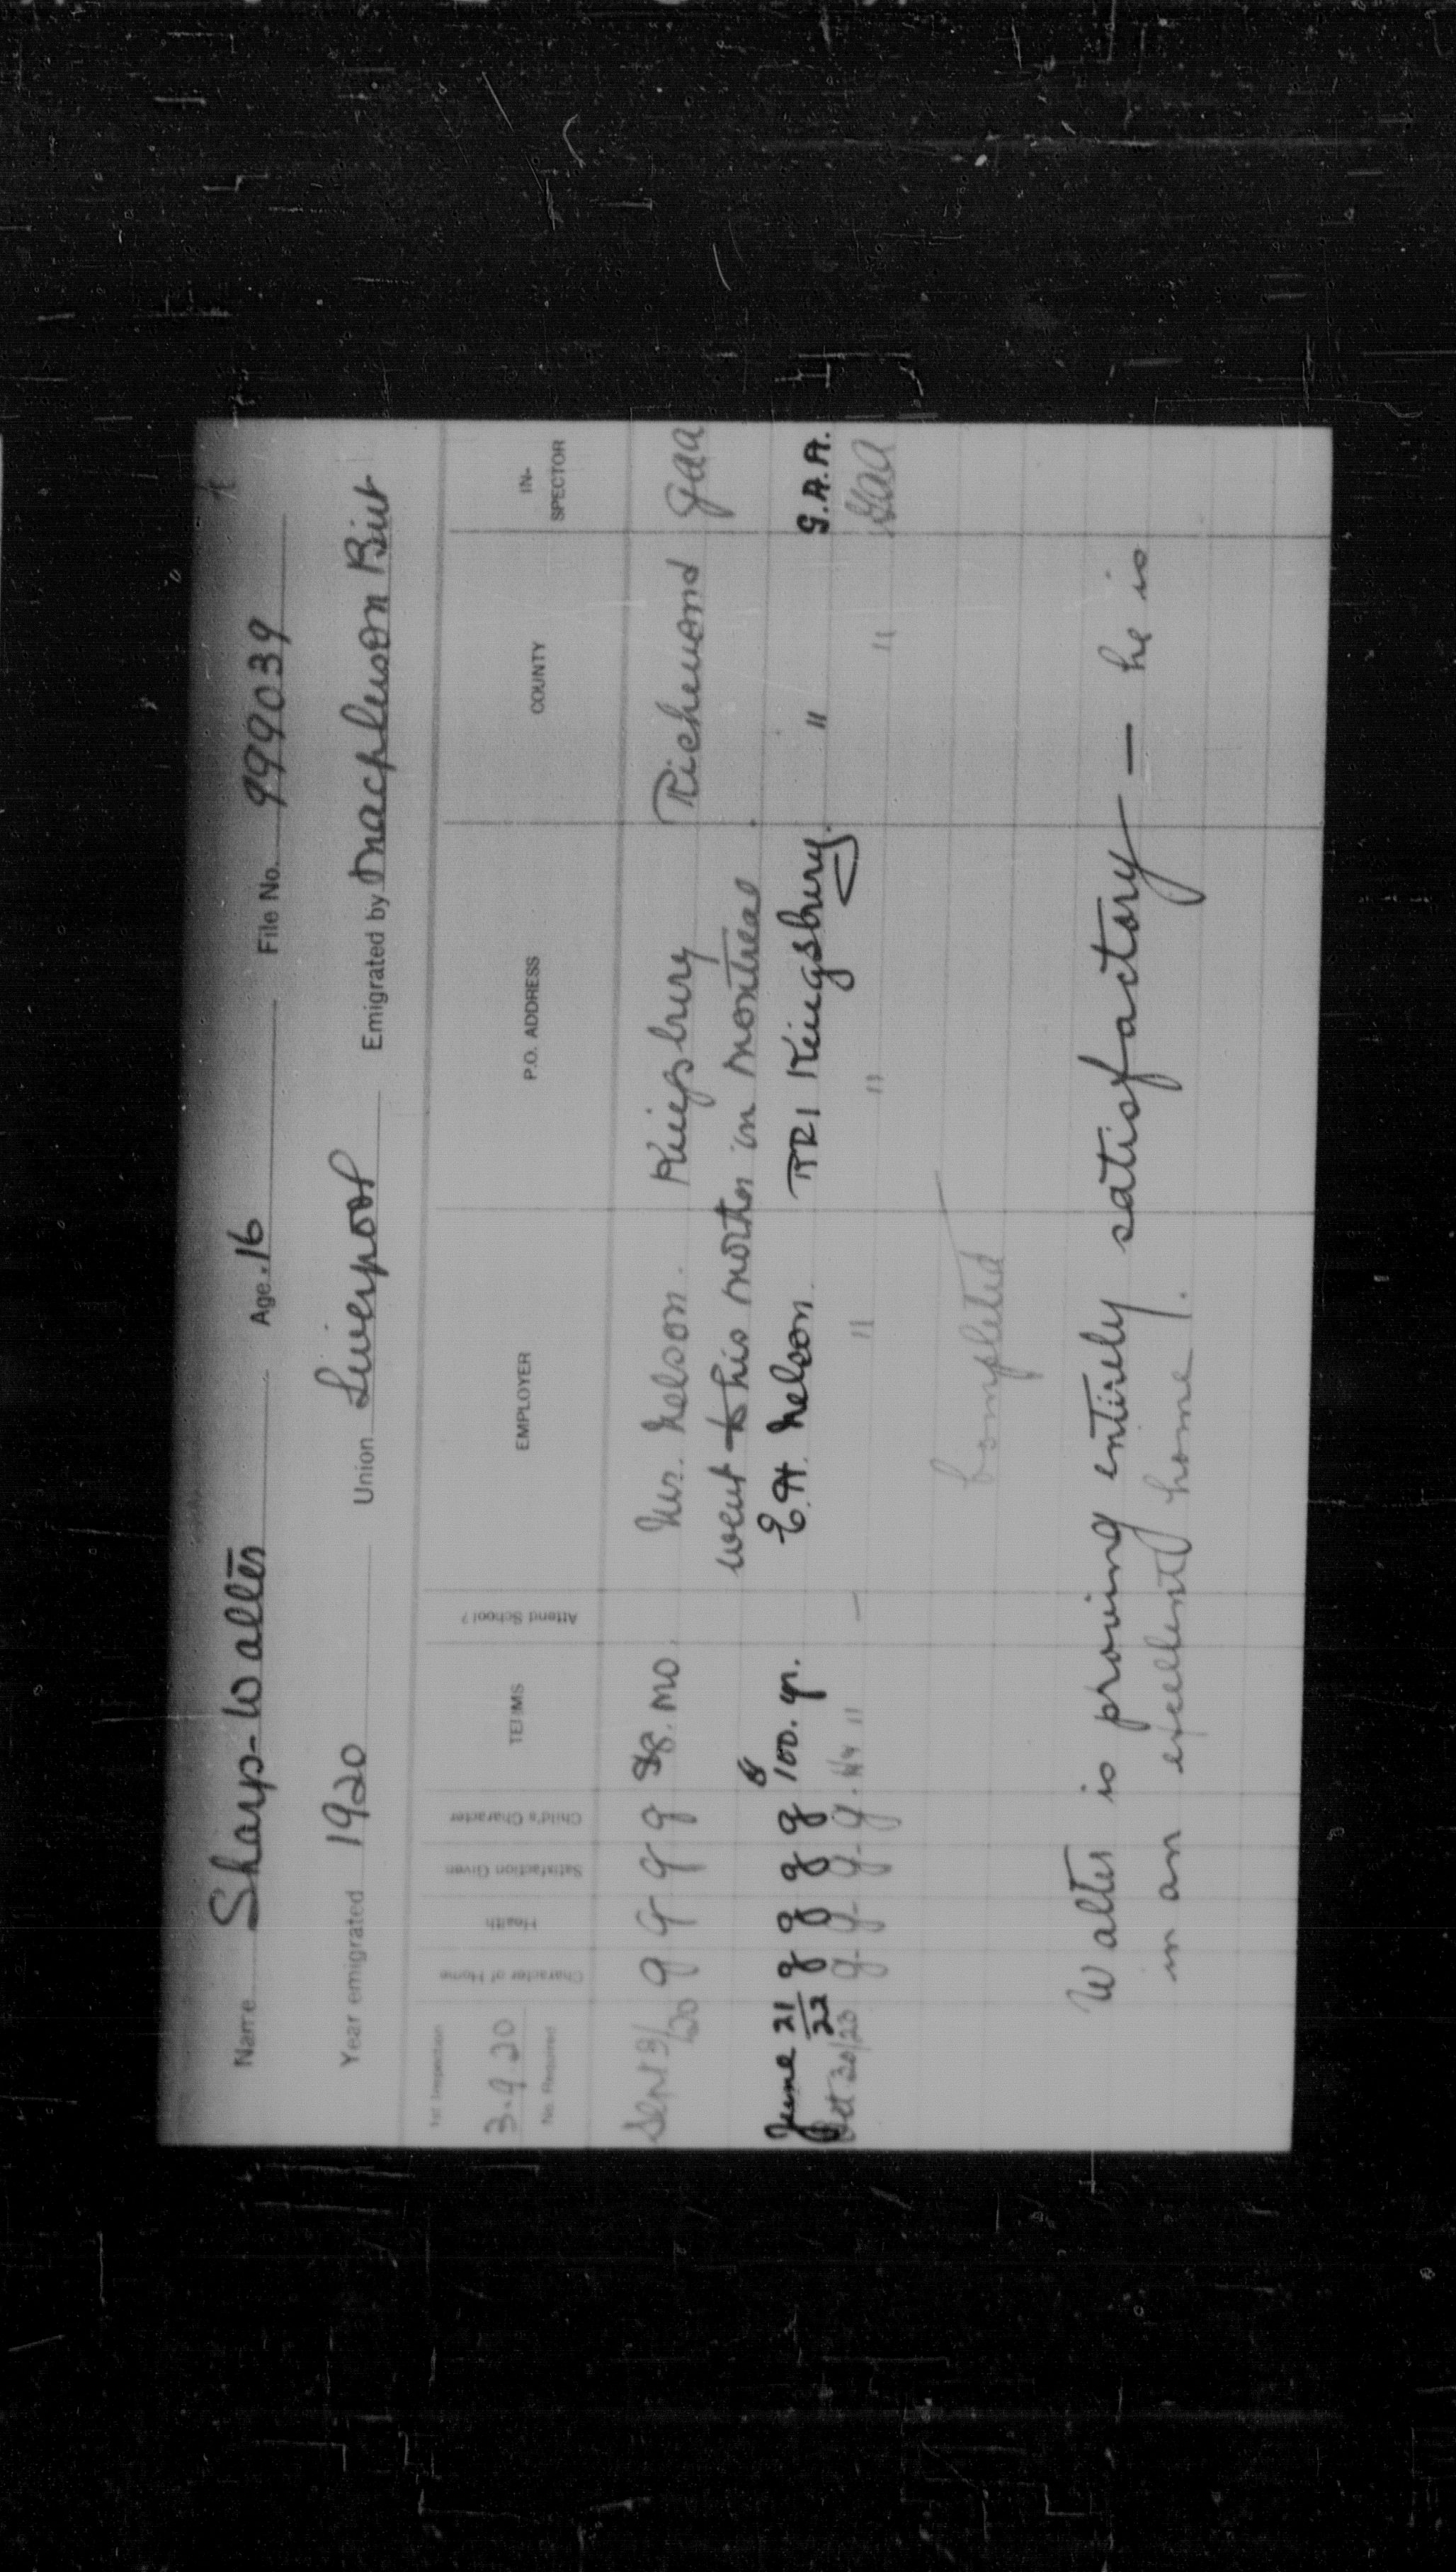 Name Sharp-Walter Age 16 File No. 999039
Year emigrated 1920 Union Liverpool Emigrated by Macpherson Birt
1st Inspection 3.9.20 No. Required Character of Home Health Satisfaction Given Child's Character TERMS Attend School? EMPLOYER P.O. ADDRESS COUNTY IN-SPECTOR
Sept 3/20 g g g g $8. mo. Mr. Nelson. Kingsbury Richmond GAA
went to his mother in Montreal
June 21/22 g g g g $100. yr. E.H. Nelson. RR1 Kingsbury. " G.A.A.
Oct 30/23 g g g g. " — " " " GAA
Completed
Walter is proving entirely satisfactory — he is
in an excellent home.